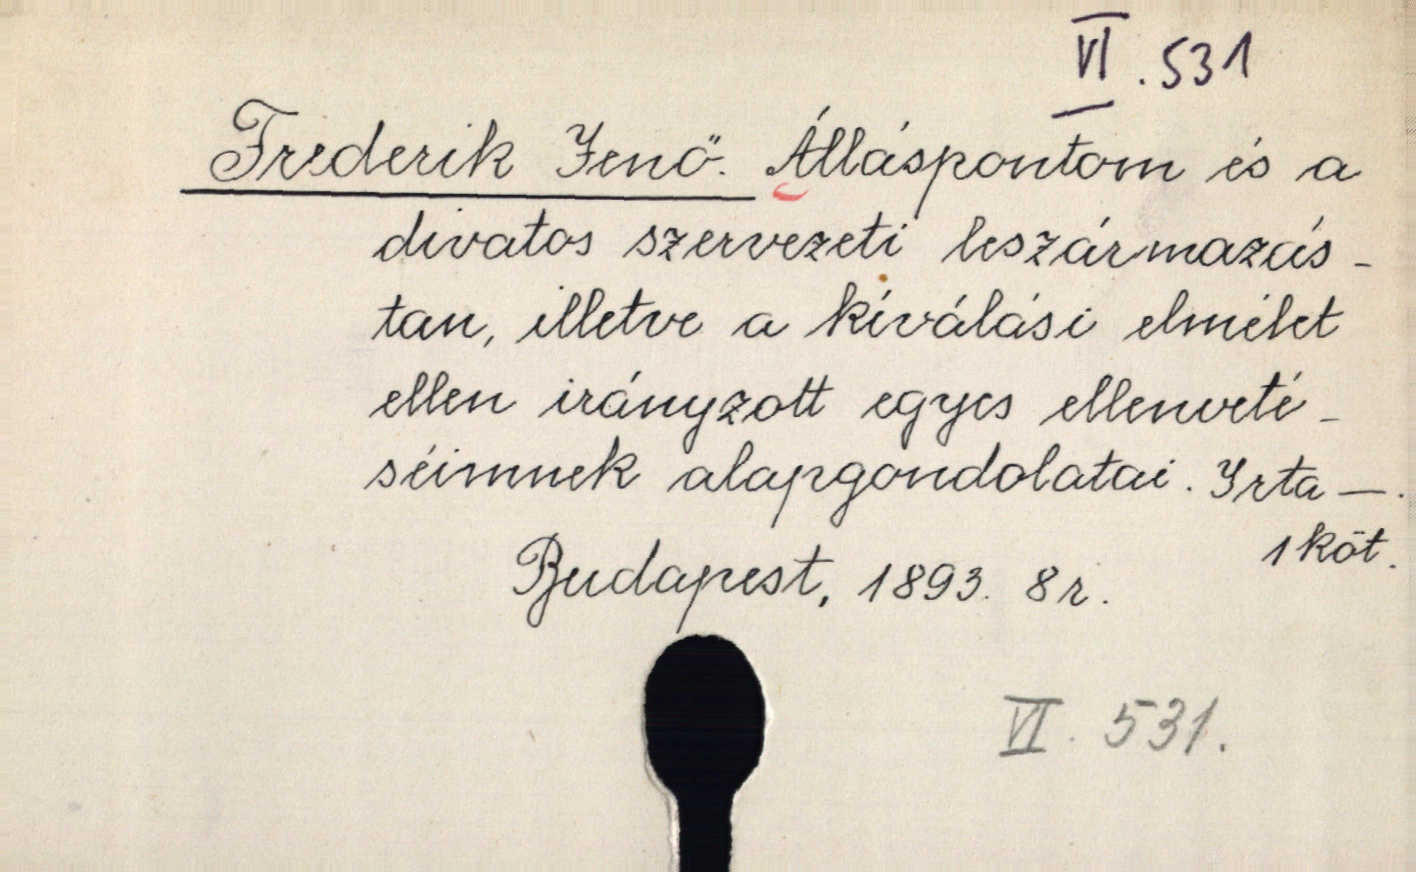 VI. 531
Frederik Jenő. Álláspontom és a
divatos szervezeti leszármazás-
tan, illetve a kíválási elmélet
ellen irányzott egyes ellenveté-
séimnek alapgondolatai. Irta —.
1 köt.
Budapest, 1893. 8r.
VI. 531.